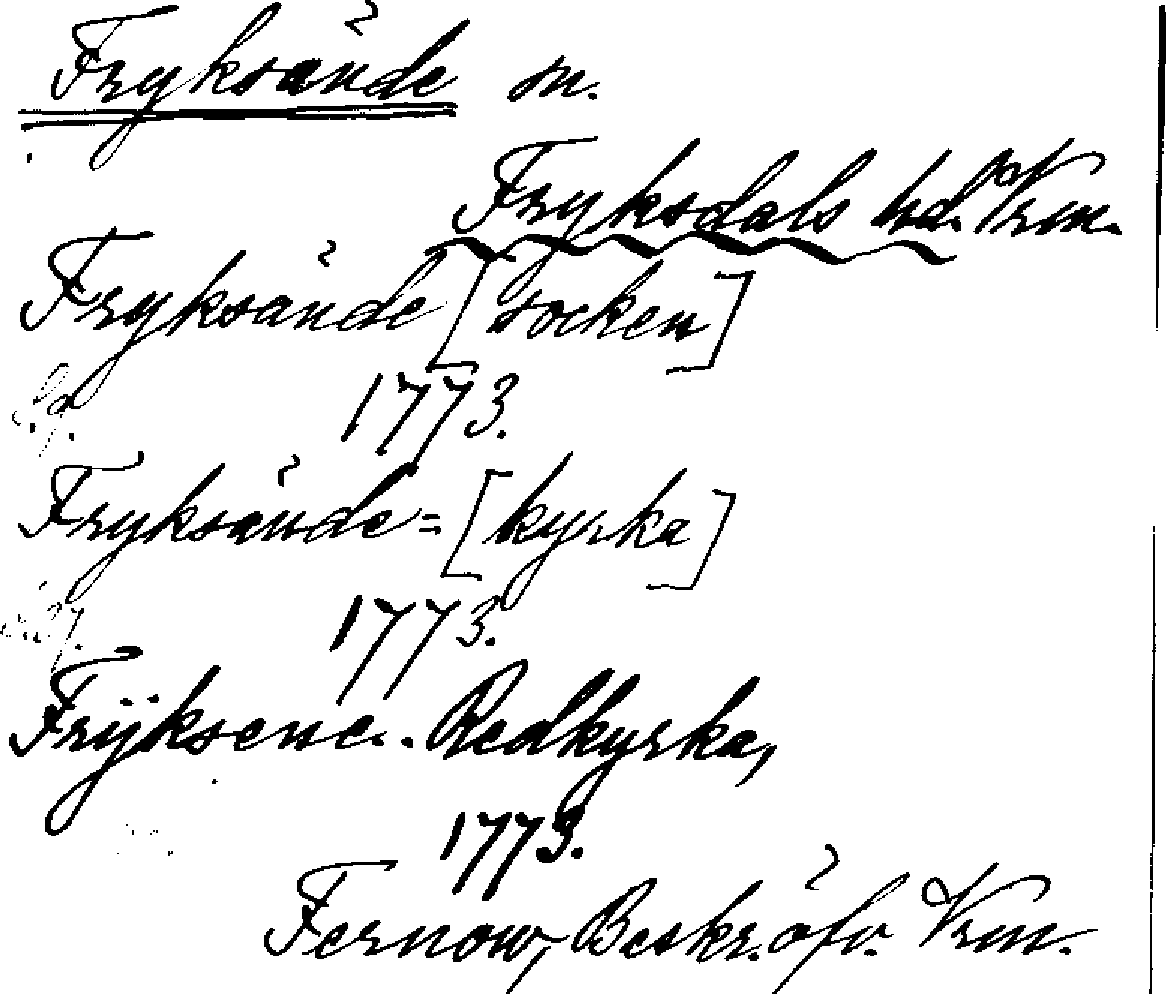 Fryksände sn.
Fryksdals hd. Vrm.
Fryksände [socken]
1773.
Fryksände = [kyrka]
1773.
Frÿksene. Redkyrka,
1773.
Fernow, Beskr. öfv. Vrm.